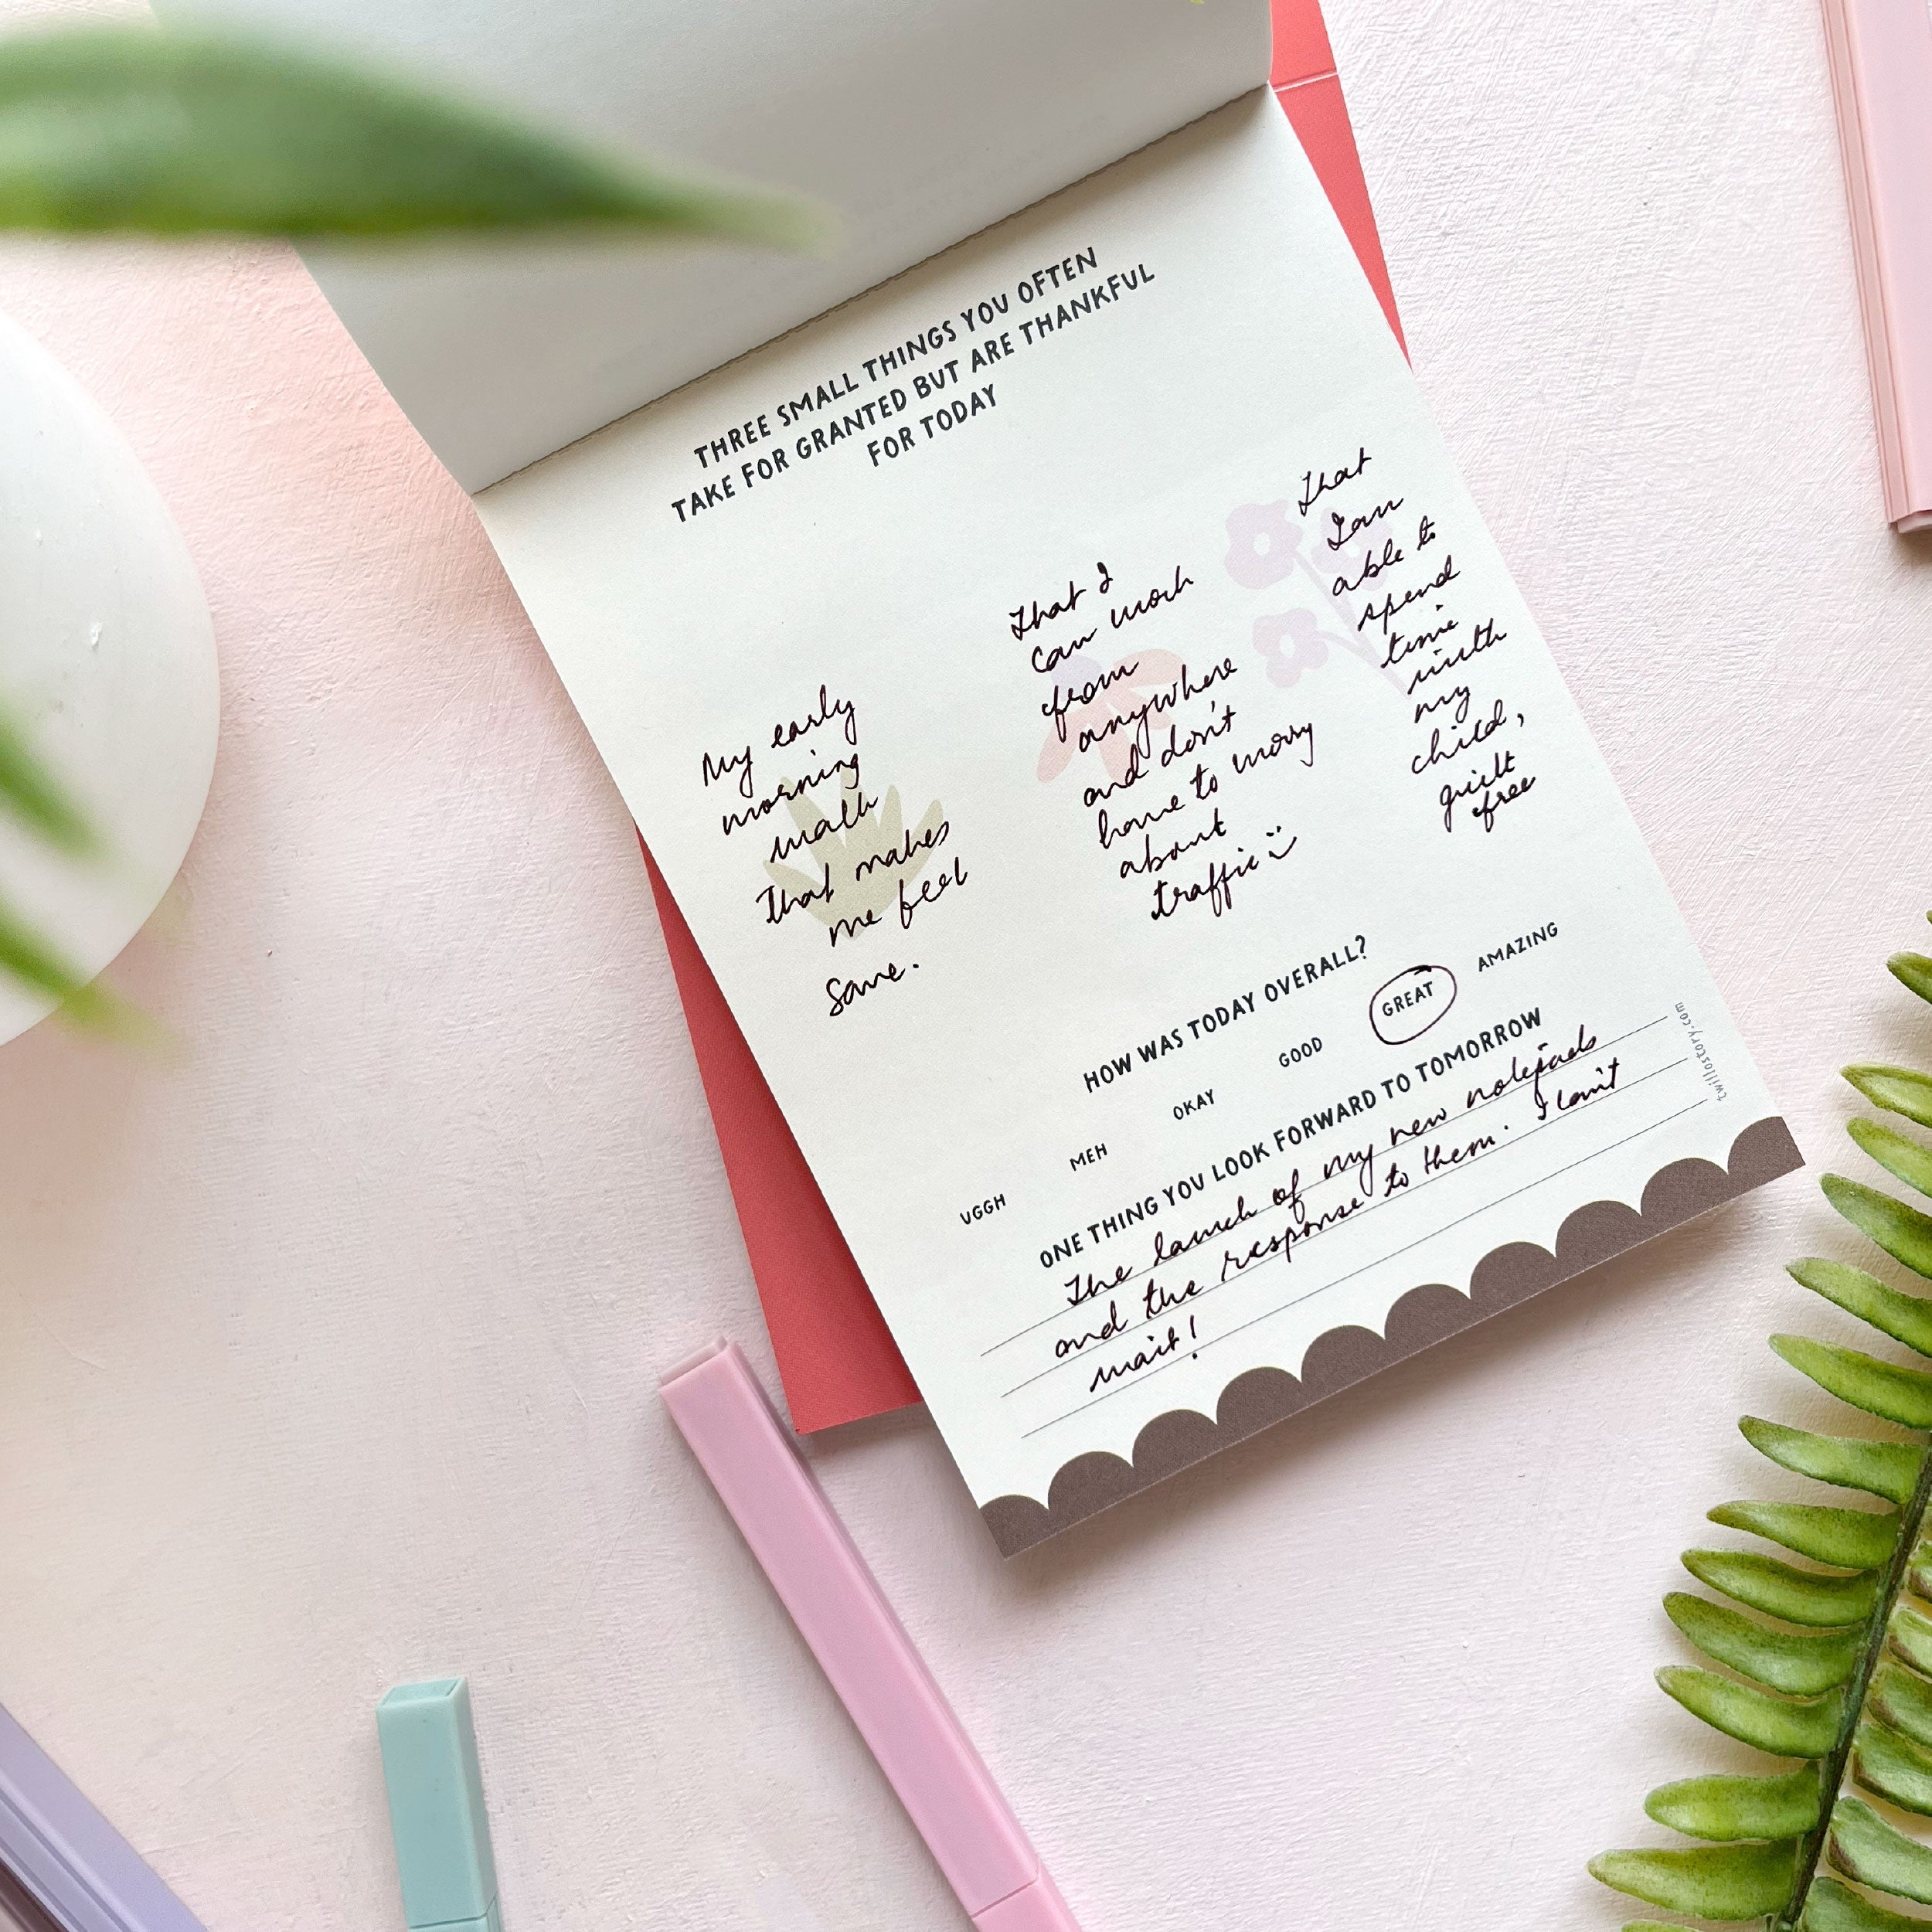 THREE SMALL THINGS YOU OFTEN
TAKE FOR GRANTED BUT ARE THANKFUL
FOR TODAY
My early
morning
walk
that makes
me feel
sane.
That I
can work
from
anywhere
and don't
have to worry
about
traffic :)
That
I am
able to
spend
time
with
my
child,
guilt
free
HOW WAS TODAY OVERALL?
UGGH MEH OKAY GOOD GREAT AMAZING
ONE THING YOU LOOK FORWARD TO TOMORROW
The launch of my new notepads
and the response to them. I can't
wait!
twillostory.com